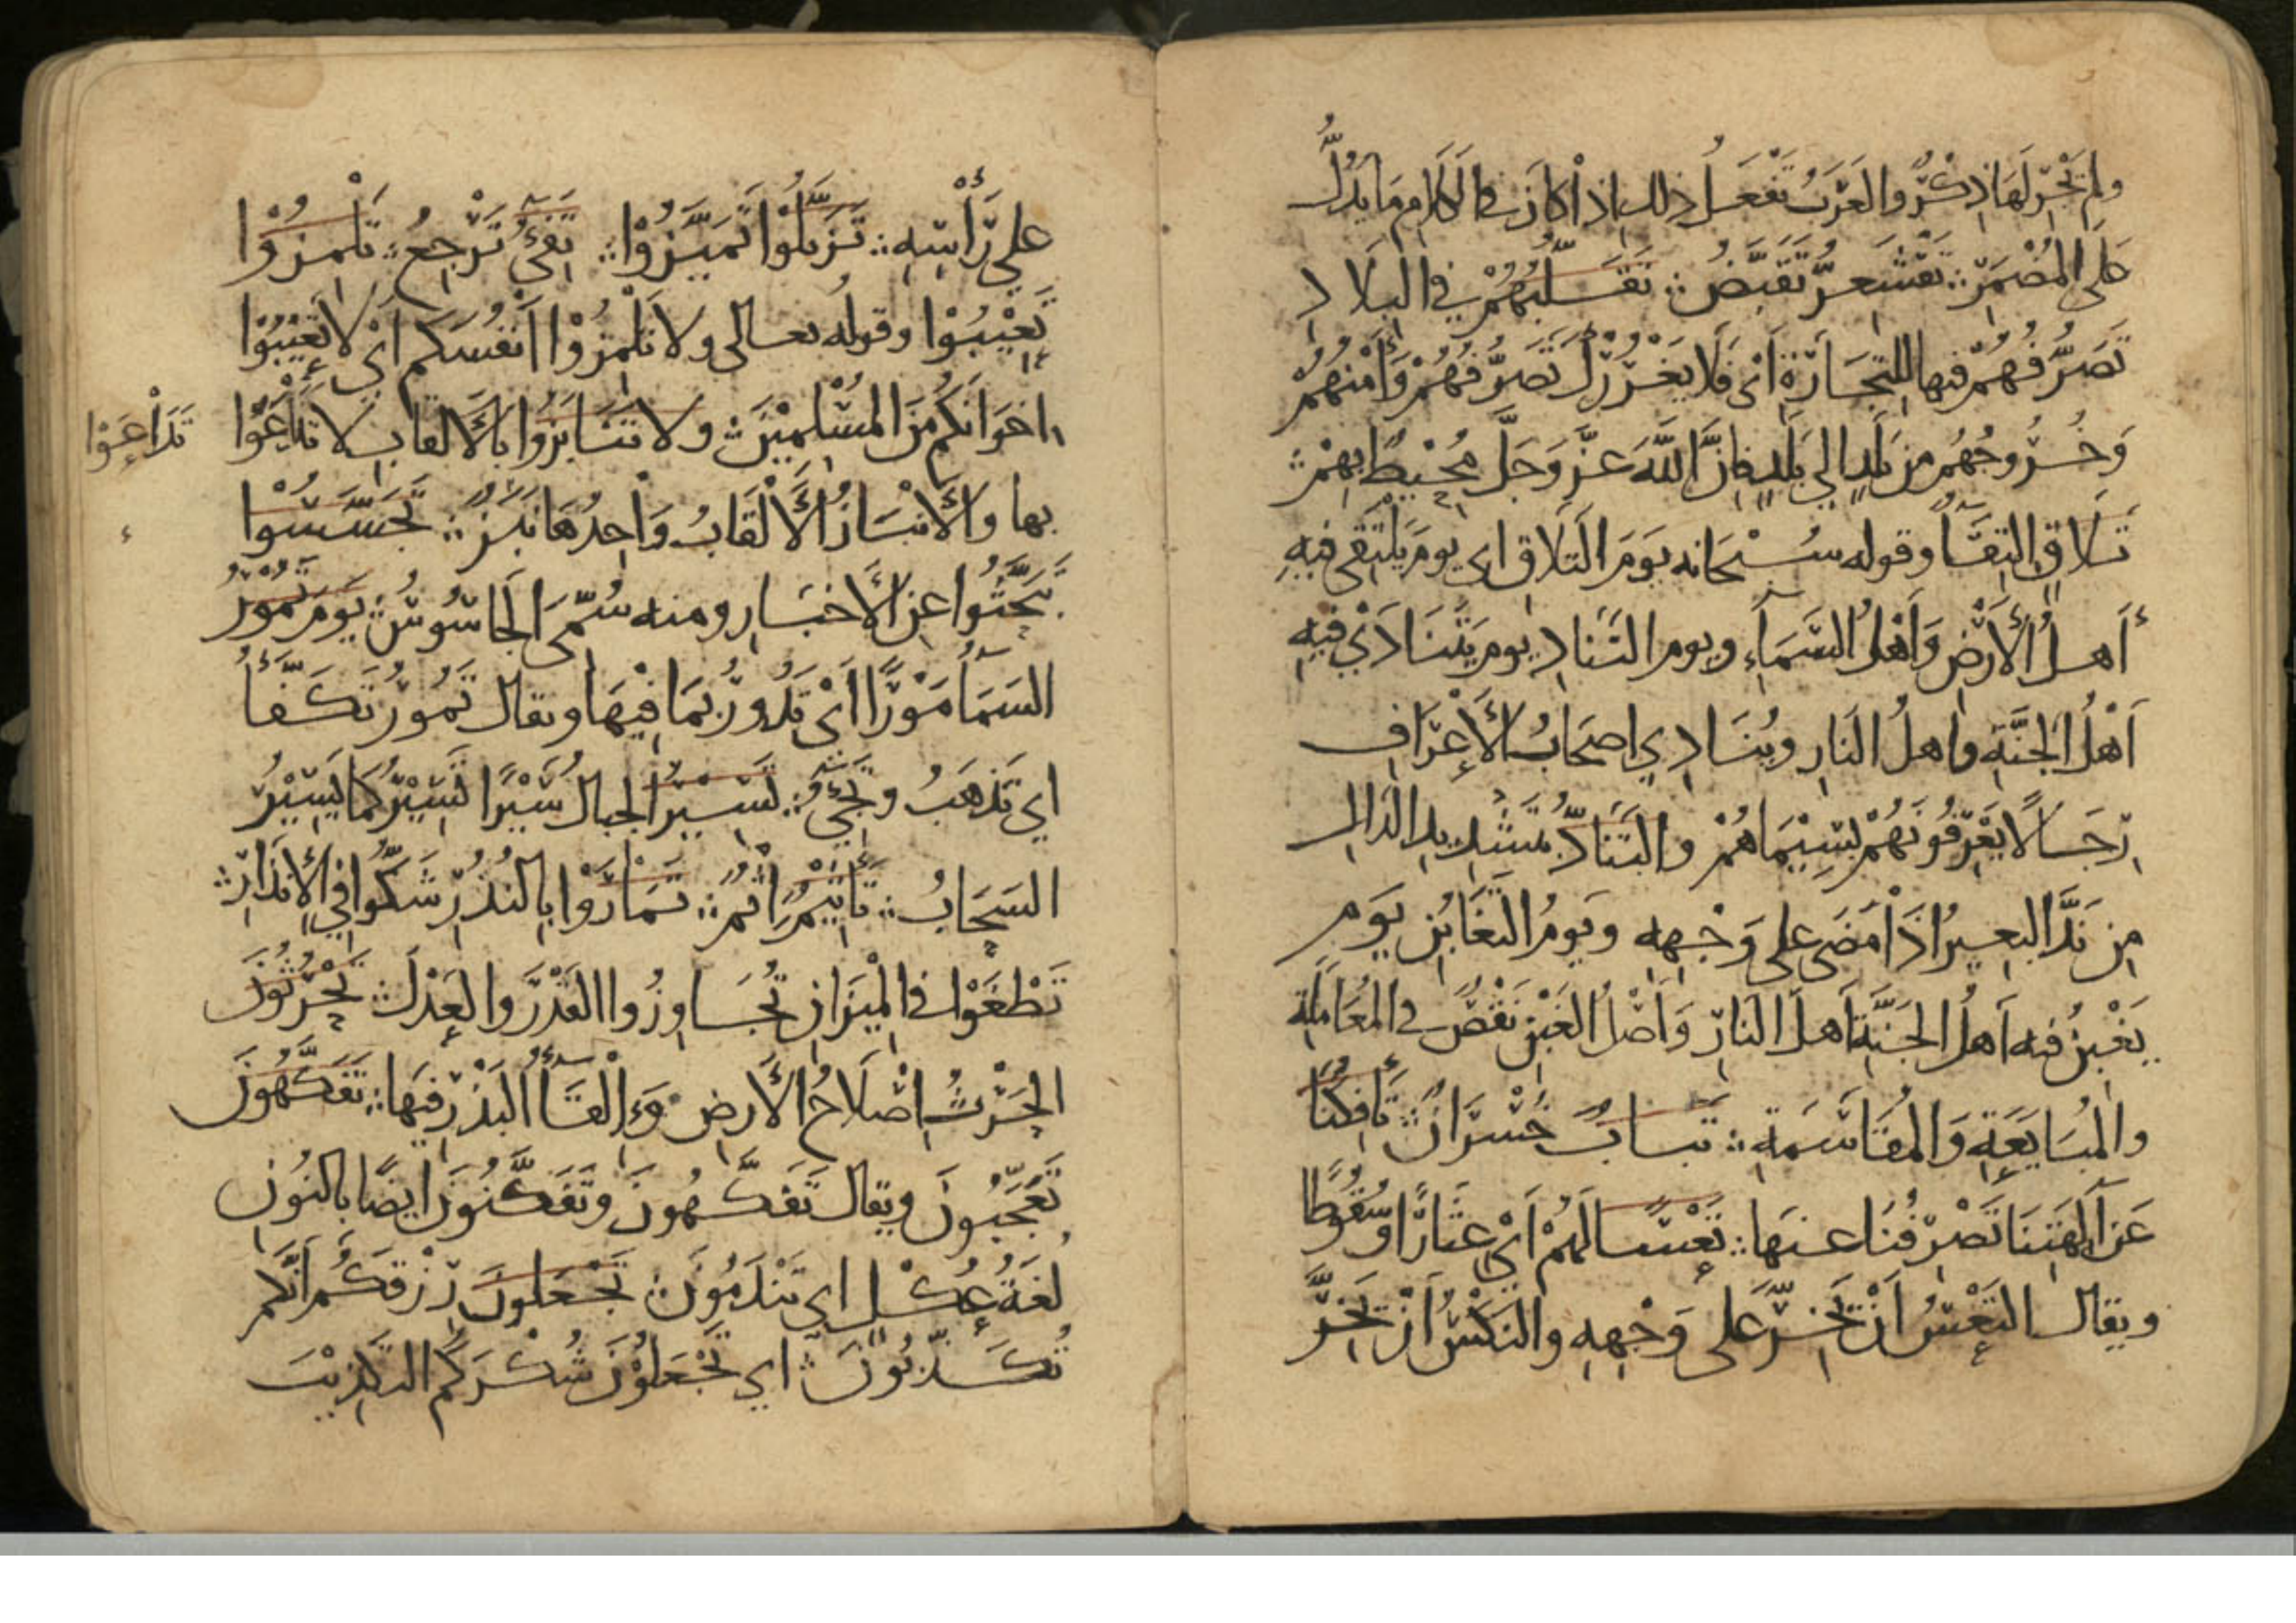 ولم يَجْرِ لَهَا ذِكْرٌ والعَرَبُ تَفْعَلُ ذلك اذا كانَ في الكَلامِ مَا يَدُلُّ
عَلَى المُضْمَرِ ؞ تَقْشَعِرُّ تَقَبَّضُ ؞ تَقَلُّبُهُمْ في البِلَادِ
تَصَرُّفُهُمْ فيها للتِجَارَةِ أيْ فَلَا يَغْرُرْكَ تَصَرُّفُهُمْ وَأَمْنُهُمْ
وَخُرُوجُهُم مِن بَلَدٍ الي بَلَدٍ فإنَّ اللَّهَ عَزَّ وَجَلَّ مُحِيْطٌ بِهِمْ ؞
تَلَاقِ التِقَآءٌ وقوله سُبْحَانه يَوْمَ التَلَاقِ اي يومَ يَلْتَقِي فيهِ
أَهلُ الأَرْضِ وَأَهْلُ السَّمَآءِ ويوم التَنَادِ يومَ يَتَنَادَيْ فيهِ
أَهْلُ الجَنَّةِ واهلُ النَارِ ويُنَادِي اصحَابُ الأَعْرَافِ
رِجَالًا يَعْرِفُونَهُمْ بِسِيْمَاهُمْ والتَنَادِّ بتَشْدِيدِ الدَالِ
مِن نَدَّ البعيرُ اذَا مَضَى على وَجْهِهِ ويَومُ التَغَابُنِ يَومَ
يَغْبِنُ فيه أَهلُ الجَنَّةِ أَهلَ النَارِ وَأَصْلُ الغَبْنِ نَقْصٌ في المُعَامَلَةِ
والمُبَايَعَةِ وَالمُقَاسَمَةِ ؞ تَبَابٌ خُسْرَانٌ ؞ تَأْفِكَنَا
عَن آلِهَتِنَا تَصْرِفُنَا عنهَا ؞ تَعْسًا لَهُمْ أيْ عِثَارًا وَسُقُوطًا
ويقال التَعْسُ أَنْ يَخِرَّ عَلى وَجْهِهِ والنَكْسُ أَنْ يَخِرَّ
على رَأْسِهِ ؞ تَزَيَّلُوْا تَمَيَّزُوْا ؞ تَفِيْءَ تَرْجِعُ ؞ تَلْمِزُوْا
تَعِيْبُوْا وقولُه تعالى ولا تَلْمِزُوْا أَنْفُسَكم أي لا تَعِيْبُوْا
اخْوَانَكُم مِنَ المُسْلِمِيْنَ ؞ ولا تَنَابَزُوا بالأَلقابِ لا تَدَاعَوْا
تَدَاعَوْا
بها والأَنْبَازُ الأَلْقَابُ وَاحِدُهَا نَبَزٌ ؞ تَجَسَّسُوْا
تَبَحَّثُوا عن الأَخبَارِ ومنه سُمّيَ الجَاسُوسُ ؞ يَومَ تَمُوْرُ
السَمَآءُ مَوْرًا أيْ تَدُورُ بمَا فِيْهَا ويقال تَمُورُ تَكَفَّأُ
اي تَذهَبُ وتَجِيْءُ ؞ تَسِيْرُ الجبالُ سَيْرًا تَسِيْرُ كَمَا يَسِيْرُ
السَحَابُ ؞ تَأْثِيْمٌ إِثْمٌ ؞ تَمَارَوْا بالنُذُرِ شَكُّوا فِي الإِنذَارِ ؞
تَطْغَوْا في المِيْزَانِ تُجَاوِزُوا القَدْرَ والعَدْلَ ؞ تَحْرُثُونَ
الحَرْثُ اصْلَاحُ الأَرضِ وَإِلْقَآءُ البَذْرِ فيهَا ؞ تَفَكَّهُونَ
تَعَجَّبُونَ ويقال تَفَكَّهُونَ وتَفَكَّنُونَ ايضًا بالنُونِ
لغَةُ عُكْلٍ اي تَنْدَمُونَ ؞ تَجْعَلُونَ رِزْقَكُم أَنَّكم
تُكَذِّبُونَ ؞ اي تَجْعَلُوْنَ شُكْرَكُم التَكْذِيْبَ